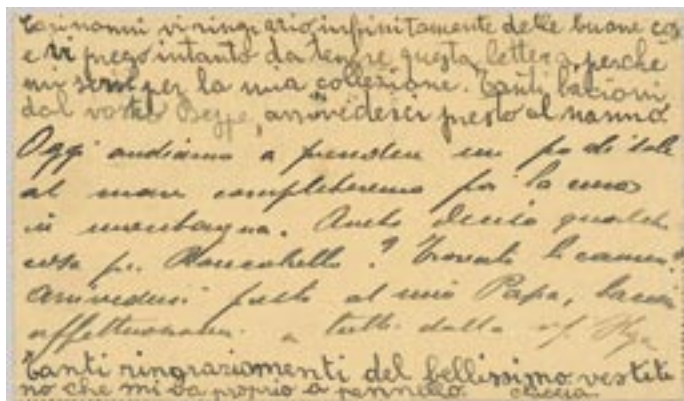 Cari nonni vi ringrazio infinitamente delle buone cos
e vi prego intanto da tenere questa lettera, perchè
mi serve per la mia collezione. Tanti bacioni
dal vostro Beppe, arrivederci presto al nonno
Oggi andiamo a prendere un po di sole
al mare completeremo poi la cura
in montagna. Avete deciso qualche
cosa per Roncobello? Trovate le camere?
Arrivederci presto al mio Papà, bacia
affettuosam. a tutti dalla aff.
Tanti ringraziamenti del bellissimo vestiti
no che mi va proprio a pennello.